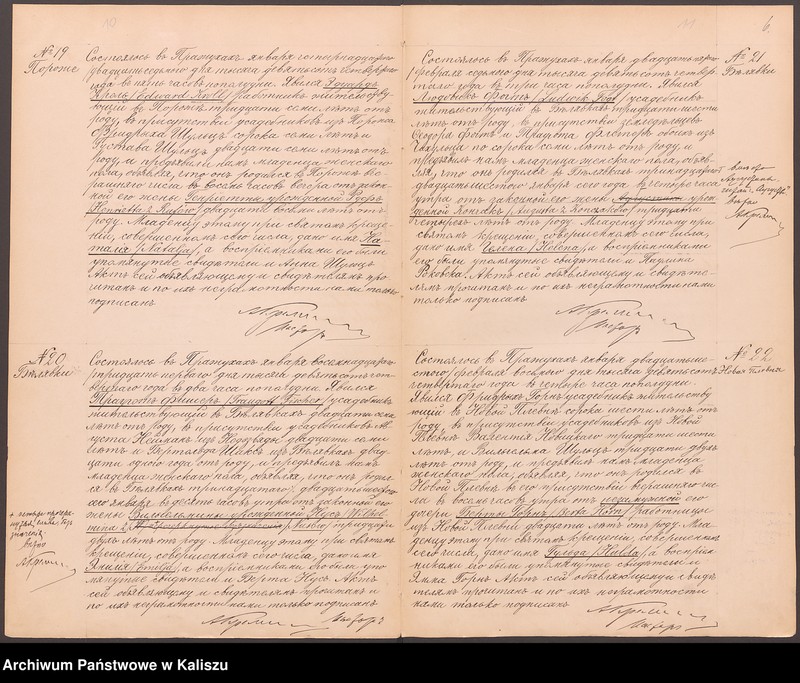 № 19
Пороже
Состоялось въ Пратухахъ января четырнадцатого
двадцать седьмого дня тысяча девятьсотъ четвертого
года въ пять часовъ пополудни. Явился Эдуардъ
/Eduard работникъ жительству-
ющій въ Пороже тридцати семи лѣтъ отъ
роду, въ присутствіи усадебниковъ изъ Пороже
Фридриха Шульцъ сорока семи лѣтъ и
Густава Шульцъ двадцати семи лѣтъ отъ
роду, и предъявилъ намъ младенца женскаго
пола, объявляя, что онъ родился въ Пороже вче-
рашняго числа въ восемь часовъ вечера отъ закон-
ной его жены Генріетты урожденной
двадцати восьми лѣтъ отъ
роду. Младенцу этому при святомъ креще-
ніи, совершенномъ сего числа, дано имя На-
талія /Natalia/, а воспріемниками его были
упомянутые свидѣтели и Анна Шульцъ
Актъ сей объявляющему и свидѣтелямъ про-
читанъ и по ихъ неграмотности нами только
подписанъ
№ 20
Бѣлявки
Состоялось въ Пратухахъ января восемнадцатого
/тридцать перваго дня тысяча девятьсотъ чет-
вертаго года въ два часа пополудни. Явился
Фишеръ усадебникъ
жительствующій въ Бѣлявкахъ двадцати
лѣтъ отъ роду, въ присутствіи усадебниковъ Ав-
густа Нейманъ изъ двадцати семи
лѣтъ и Бертольда изъ Бѣлявкахъ двад-
цати одного года отъ роду, и предъявилъ намъ
младенца женскаго пола, объявляя, что онъ родил-
ся въ Бѣлявкахъ
января въ десять часовъ утра отъ законной его
жены Вильгельмины урожденной
тридцати
двухъ лѣтъ отъ роду. Младенцу этому при святомъ
крещеніи, совершенномъ сего числа, дано имя
Эмилія /Emilia/, а воспріемниками его были упо-
мянутые свидѣтели и Берта Актъ
сей объявляющему и свидѣтелямъ прочитанъ и
по ихъ неграмотности нами только подписанъ
6.
№ 21
Бѣлявки
Состоялось въ Пратухахъ января двадцать
/февраля седьмого дня тысяча девятьсотъ четвер-
таго года въ три часа пополудни. Явился
Людвикъ /Ludwik усадебникъ
жительствующій въ Бѣлявкахъ тридцати шести
лѣтъ отъ роду, въ присутствіи земледѣльцевъ
Теодора и обоихъ изъ
по сорока семи лѣтъ отъ роду, и
предъявилъ намъ младенца женскаго пола, объяв-
ляя, что онъ родился въ Бѣлявкахъ тринадцатаго
двадцать шестого января сего года въ четыре часа
утра отъ законной его жены урож-
денной /Augusta z тридцати
четырехъ лѣтъ отъ роду. Младенцу этому при
святомъ крещеніи, совершенномъ сего числа,
дано имя Гелена /Helena/, а воспріемниками
его были упомянутые свидѣтели и Паулина
Актъ сей объявляющему и свидѣте-
лямъ прочитанъ и по ихъ неграмотности нами
только подписанъ
№ 22
Новая Плевня
Состоялось въ Пратухахъ января двадцать ше-
стого /февраля восьмого дня тысяча девятьсотъ
четвертаго года въ четыре часа пополудни.
Явился Фридрихъ Горнъ усадебникъ жительству-
ющій въ Новой Плевнѣ сорока шести лѣтъ отъ
роду, въ присутствіи усадебниковъ изъ Новой
Плевни Валентія Новицкаго тридцати шести
лѣтъ и Вильгельма Шульцъ тридцати двухъ
лѣтъ отъ роду, и предъявилъ намъ младенца
женскаго пола, объявляя, что онъ родился въ
Новой Плевнѣ въ его присутствіи вчерашняго чис-
ла въ восемь часовъ утра отъ незамужней его
дочери Берты Горнъ /Berta работницы
изъ Новой Плевни двадцати лѣтъ отъ роду. Мла-
денцу этому при святомъ крещеніи, совершенномъ
сего числа, дано имя Гульда /Hulda/, а воспріем-
никами его были упомянутые свидѣтели и
Горнъ Актъ сей объявляющему и свидѣ-
телямъ прочитанъ и по ихъ неграмотности
нами только подписанъ
Archiwum Państwowe w Kaliszu